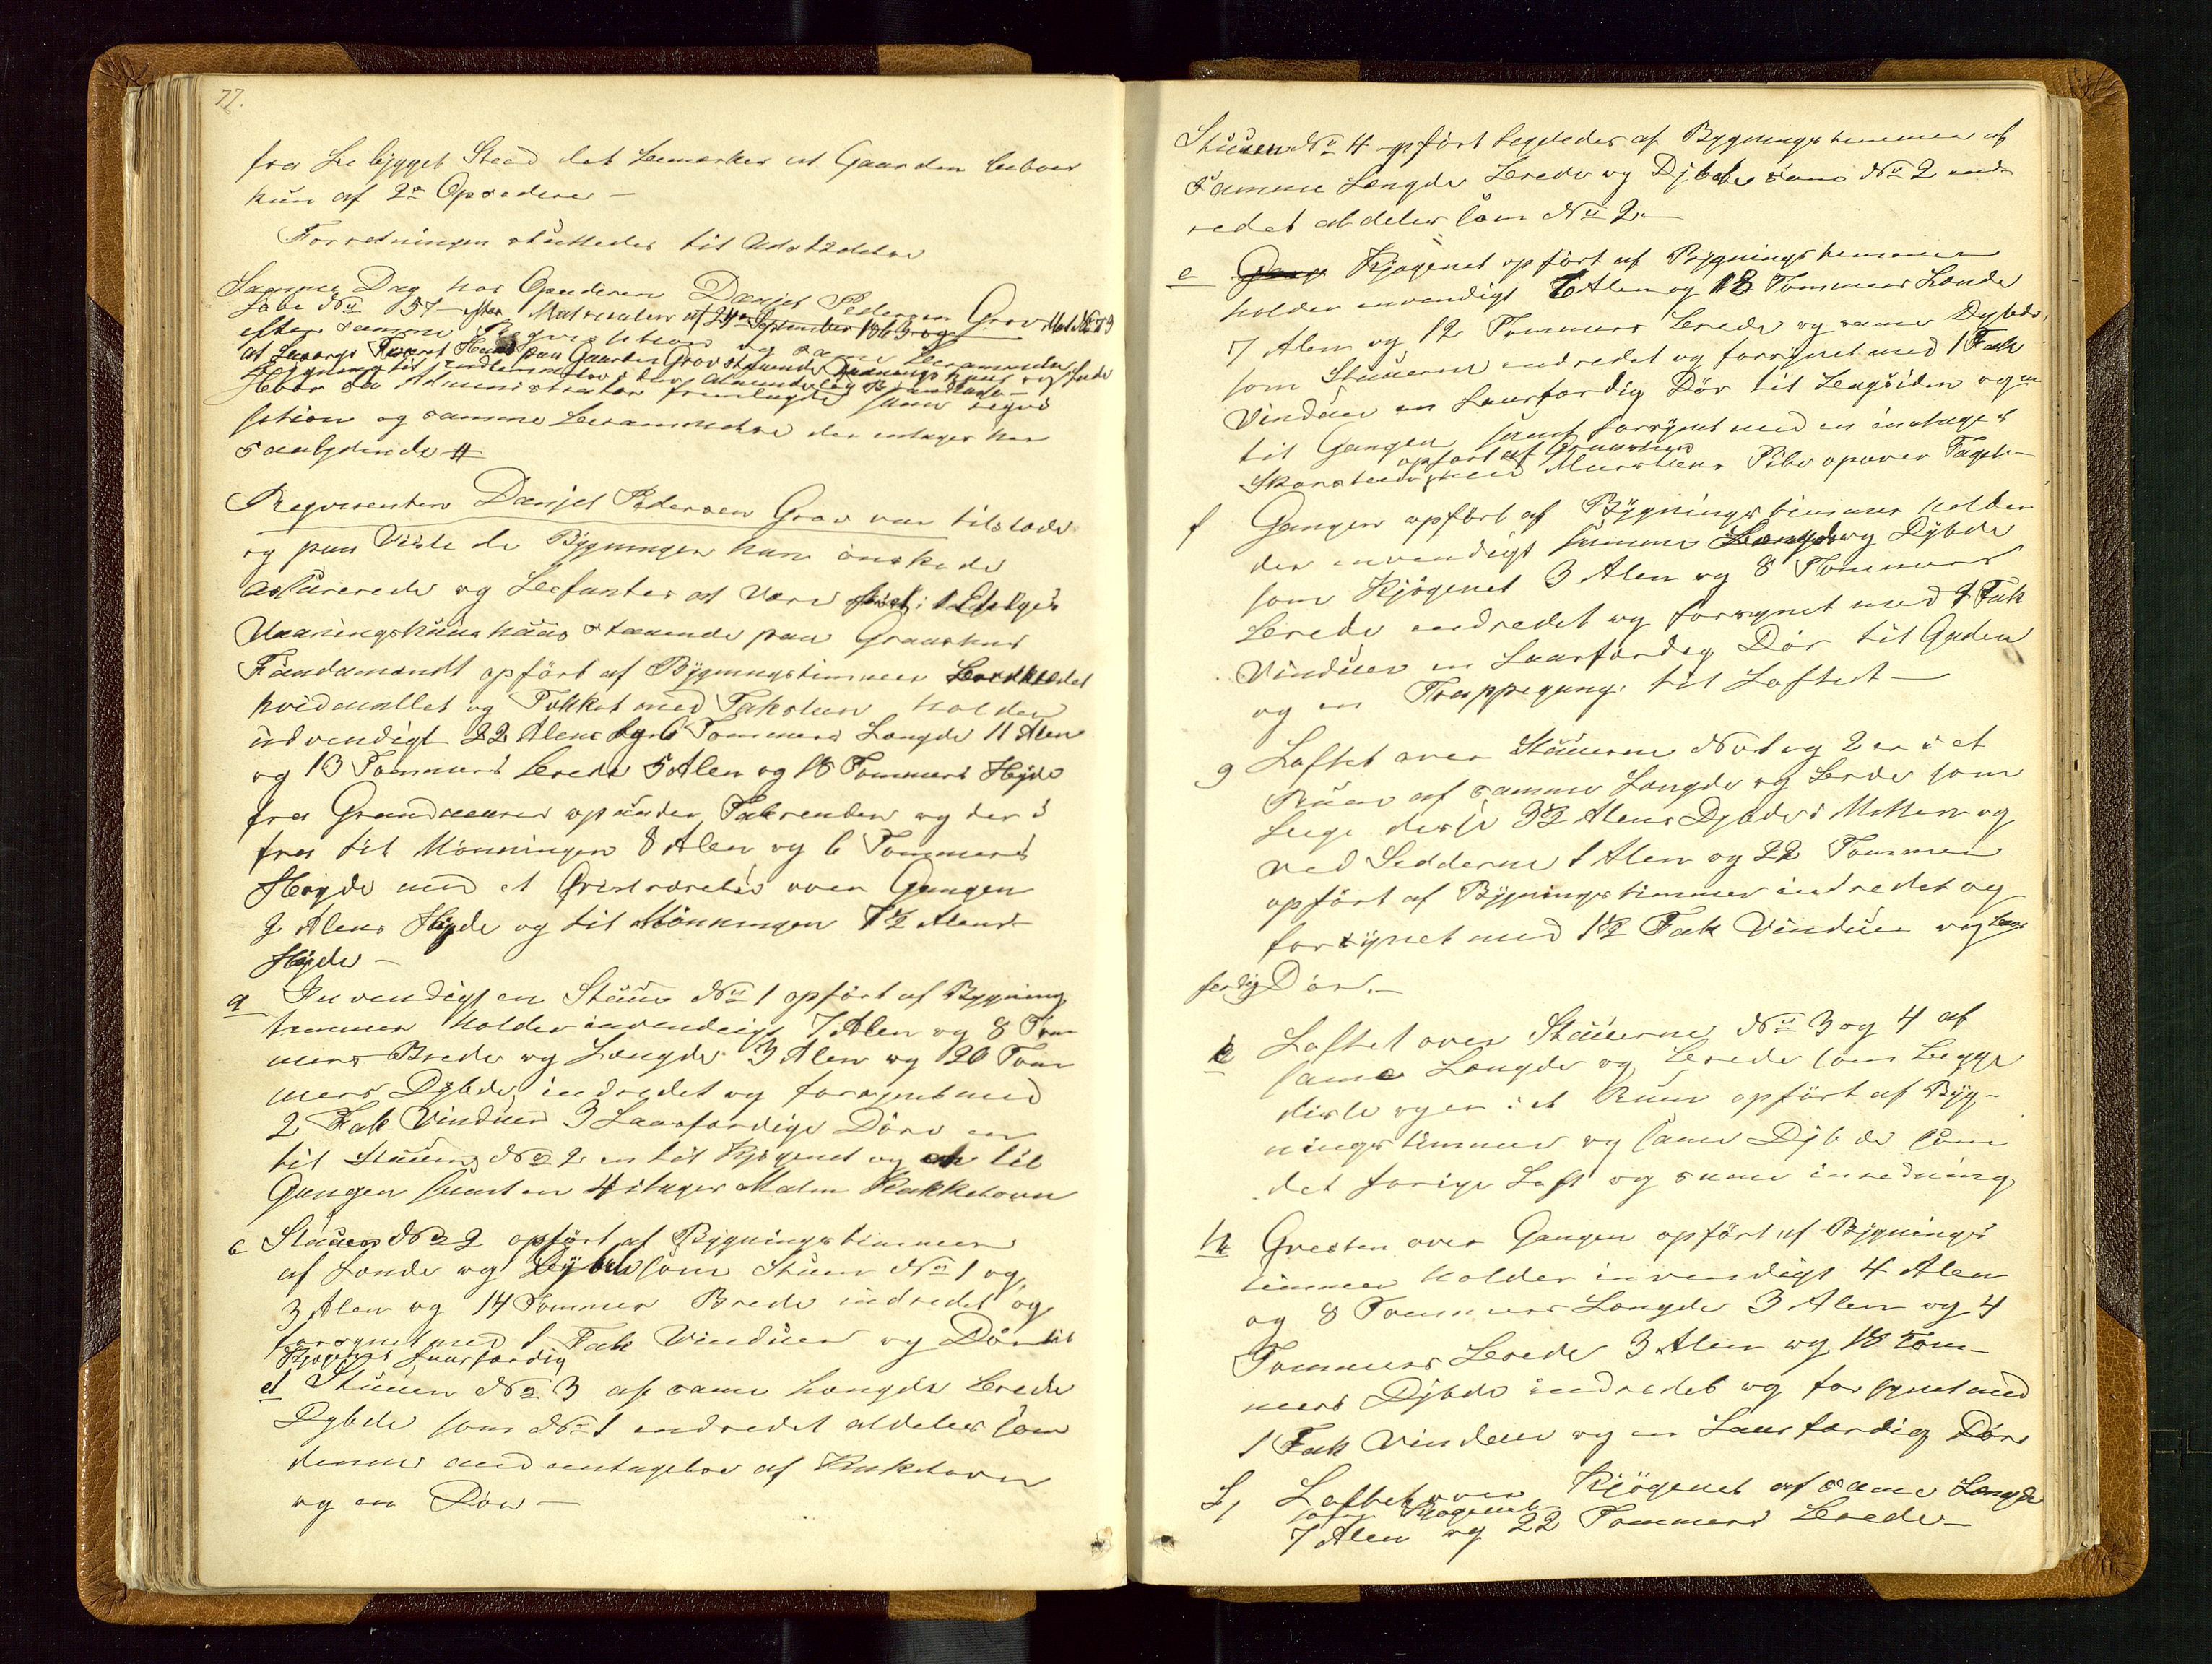 77.
fra bebygget Sted det bemærkes at Gaarden beboes
kun af 2de Opsedere —
Forretningen sluttedes til Udstædelse
Samme Dag hos Opsideren Danjel Pedersen Grov Mat No 73
Løbe No 157 efter Matrikulen af 24de September 1863 og
efter samme Reqvisition og same Berammelse
at Lavergs Taxeret Huus paa Gaarden Grov staaende Vaanings huus og Søde
bygning til indlemmelse i den almindelig Brandkasse
Hvor da Administrator fremlagde samme Reqvi
sition og samme Berammelse der indtages her
saalydende #
Reqvirenten Danjel Pedersen Grov var tilstæde
og paa Viste de Bygninger han ønskede
Assurerede og befantes at være først: 1 Etages
Vaaningshuus huus staaende paa Graasteens
Fundamendt opført af Bygningstimmer Bordklædet
hvidmallet og Tækket med Taksteen holder
udvendigt 22 Alens og 6 Tommers Længde 11 Alen
og 13 Tommers brede 5 Alen og 18 Tommers Høyde
fra Grundmuren op under Takrenden og der i
fra til Mønningen 8 Alen og 6 Tommers
Høyde med et Qvistværelse over Gangen
2 Alens Høyde og til Mønningen 7½ Alens
Høyde —
a Invendigt en Stue No 1 opført af Bygnings
timmer holder invendigt 7 Alen og 8 Tom
mers Brede og Længde 3 Alen og 20 Tom
mers Dybde indredet og forsynet med
2 Fak Vinduer 3 Laasfærdige Døre en
til Stuen No 2 en til Kjøgenet og en til
Gangen samt en 4 etages Malm Kakkelovn
b Stuen No 2 opført af Bygningstimmer
af Længde og Dybde som Stuen No 1 og
3 Alen og 14 Tommer Brede indredet og
forsynet med 1 Fak Vinduer og Dør til
Kjøgenet Laasfærdig
d Stuen No 3 af same Længde brede
Dybde som No 1 indredet aldeles som
denne med untagelse af Kakelovn
og en Dør —
Stuen No 4 opført ligeledes af Bygningstimmer af
samme Længde brede og Dybde som No 2 ind
redet aldeles som No 2 —
e Kjøgenet opført af Bygningstimmer
holder invendigt 6 Alen og 18 Tommers Længde
7 Alen og 12 Tommers brede og same Dybde
som Stuerne indredet og forsynet med 1 Fak
Vinduer en Laasfærdig Dør til Længsiden og en
til Gangen samt forsynet med en indtages
opført af Graasteen
Skorsteen med Murstens Pibe opover Taget —
f Gangen opført af Bygningstimmer holden
der invendigt samme Længde og Dybde
som Kjøgenet 3 Alen og 8 Tommers
brede indredet og forsynet med 1 Fak
Vinduer en Laasfærdig Dør til Gaden
og en Trappegang til Loftet —
g Loftet over Stuerne No 1 og 2 er i et
Rum af samme Længde og brede som
begge disse 3½ Alens Dybde i Mitten og
ved Sidderne 1 Alen og 22 Tommer
opført af Bygningstimmer indredet og
forsynet med 1½ Fak Vinduer og Laas
færdig Dør —
h Loftet over Stuerne No 3 og 4 af
same Længde og brede som begge
disse og er i et Rum opført af Byg-
ningstimmer og same Dybde som
det forige Loft og same inredning
k Qvisten over Gangen opført af Bygnings
timmer holder invendigt 4 Alen
og 8 Tommers Længde 3 Alen og 4
Tommers brede 3 Alen og 18 Tom-
mers Dybde indredet og forsynet med
1 Fak Vinduer og en Laasfærdig Dør
L, Loftet over Kjøgenet af same Længde
som Kjøgenet
7 Alen og 22 Tommers brede —